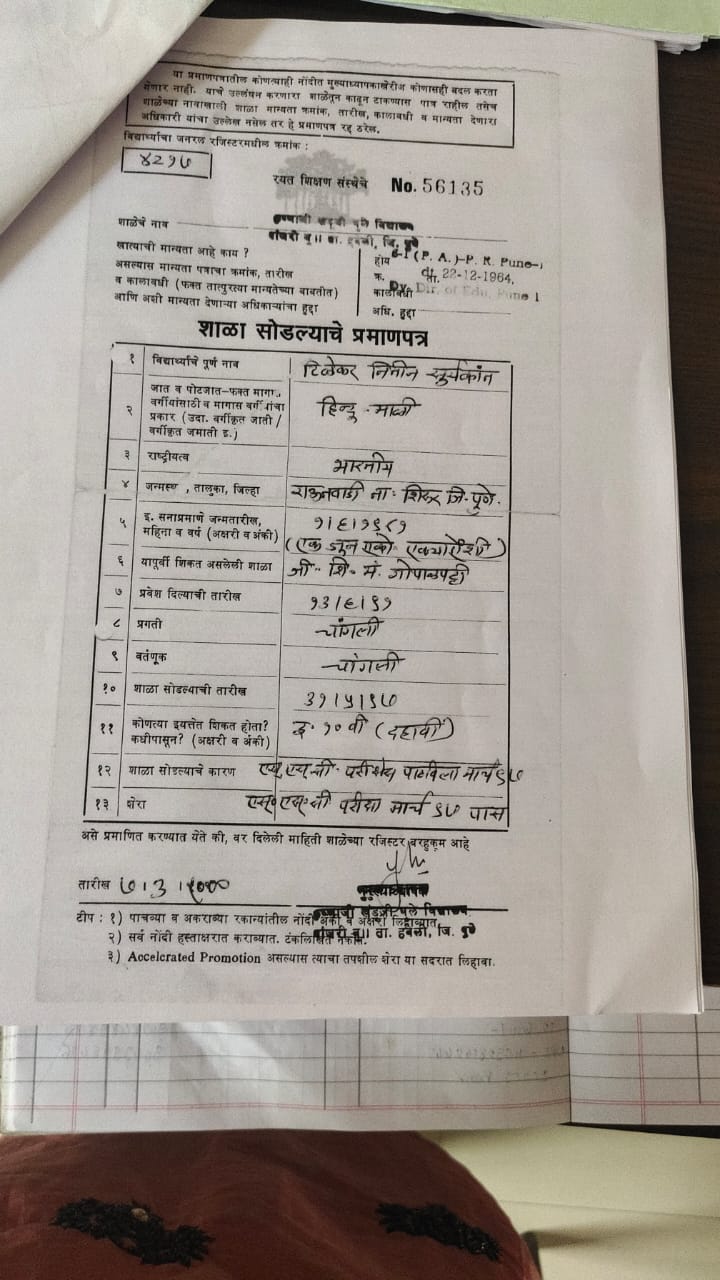 या प्रमाणपत्रातील कोणत्याही नोंदीत मुख्याध्यापकाखेरीज कोणासही बदल करता
येणार नाही. याचे उल्लंघन करणारा शाळेतून काढून टाकण्यास पात्र राहील तसेच
शाळेच्या नावाखाली शाळा मान्यता क्रमांक, तारीख, कालावधी व मान्यता देणारा
अधिकारी यांचा उल्लेख नसेल तर हे प्रमाणपत्र रद्द ठरेल.
विद्यार्थ्याचा जनरल रजिस्टरमधील क्रमांक :
४२१७
रयत शिक्षण संस्थेचे No. 56135
शाळेचे नाव
मांजरी बु॥ ता. हवेली, जि. पुणे
खात्याची मान्यता आहे काय ?
होय (P. A.)-P. R. Pune-
असल्यास मान्यता पत्राचा क्रमांक, तारीख
क्र. ता. 22-12-1964.
व कालावधी (फक्त तात्पुरत्या मान्यतेच्या बाबतीत)
कालावधी Dy. Dir. of Edu. Pune 1
आणि अशी मान्यता देणाऱ्या अधिकाऱ्यांचा हुद्दा
अधि. हुद्दा
शाळा सोडल्याचे प्रमाणपत्र
१ विद्यार्थ्याचे पूर्ण नाव टिळेकर नितीन सूर्यकांत
जात व पोटजात-फक्त मागास
२ वर्गीयांसाठी व मागास वर्गीयांचा हिन्दु - माळी
प्रकार (उदा. वर्गीकृत जाती /
वर्गीकृत जमाती इ.)
३ राष्ट्रीयत्व भारतीय
४ जन्मस्थळ, तालुका, जिल्हा राऊतवाडी ता. शिरूर जि. पुणे.
५ इ. सनाप्रमाणे जन्मतारीख, १।६।१९८१
महिना व वर्ष (अक्षरी व अंकी) (एक जून एकोण एक्याऐंशी)
६ यापूर्वी शिकत असलेली शाळा जी. शि. मं. गोपाळपट्टी
७ प्रवेश दिल्याची तारीख १३।६।९१
८ प्रगती चांगली
९ वर्तणूक चांगली
१० शाळा सोडल्याची तारीख ३१।५।९७
११ कोणत्या इयत्तेत शिकत होता? इ. १० वी (दहावी)
कधीपासून? (अक्षरी व अंकी)
१२ शाळा सोडल्याचे कारण एस्. एस्. सी. परीक्षेस पाठविला मार्च ९७
१३ शेरा एस्. एस्. सी परीक्षा मार्च ९७ पास
असे प्रमाणित करण्यात येते की, वर दिलेली माहिती शाळेच्या रजिस्टर बरहुकूम आहे
तारीख ७।३।२०००
मुख्याध्यापक
टीप : १) पाचव्या व अकराव्या रकान्यांतील नोंदी अंकी व अक्षरी लिहाव्यात.
२) सर्व नोंदी हस्ताक्षरात कराव्यात. टंकलिखित नकोत.
मांजरी बु॥ ता. हवेली, जि. पुणे
३) Accelcrated Promotion असल्यास त्याचा तपशील शेरा या सदरात लिहावा.